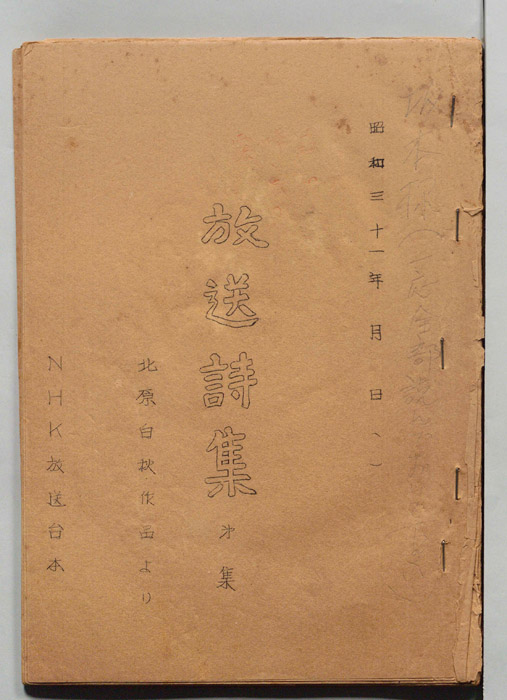 昭和三十一年 月 日、）
放送詩集 才 集
北原白秋作品より
NHK放送台本